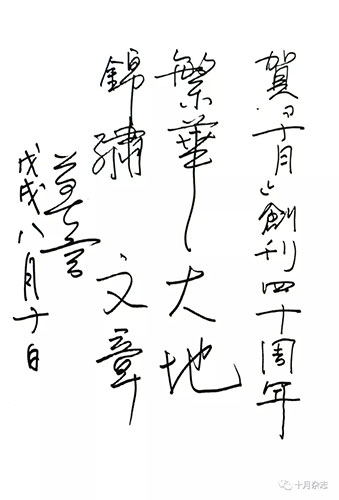 賀「十月」創刊四十周年
繁華大地
錦繡文章
莫言
戊戌八月十日
十月杂志